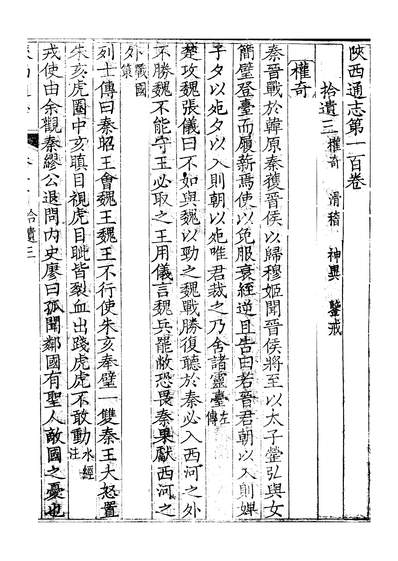 陝西通志第一百卷
拾遺三 權奇 滑稽 神異 鑒戒
權奇
秦晉戰於韓原秦獲晉侯以歸穆姬聞晉侯將至以太子罃弘與女
簡璧登臺而履薪焉使以免服衰絰逆且告曰若晉君朝以入則婢
子夕以死夕以入則朝以死唯君裁之乃舍諸靈臺左傳
楚攻魏張儀曰不如與魏以勁之魏戰勝復聽於秦必入西河之外
不勝魏不能守王必取之王用儀言魏兵罷敝恐畏秦果獻西河之
外戰國策
列士傳曰秦昭王會魏王魏王不行使朱亥奉璧一雙秦王大怒置
朱亥虎圈中亥瞋目視虎目眦皆裂血出踐虎虎不敢動水經注
戎使由余觀秦繆公退問內史廖曰孤聞鄰國有聖人敵國之憂也
拾遺三